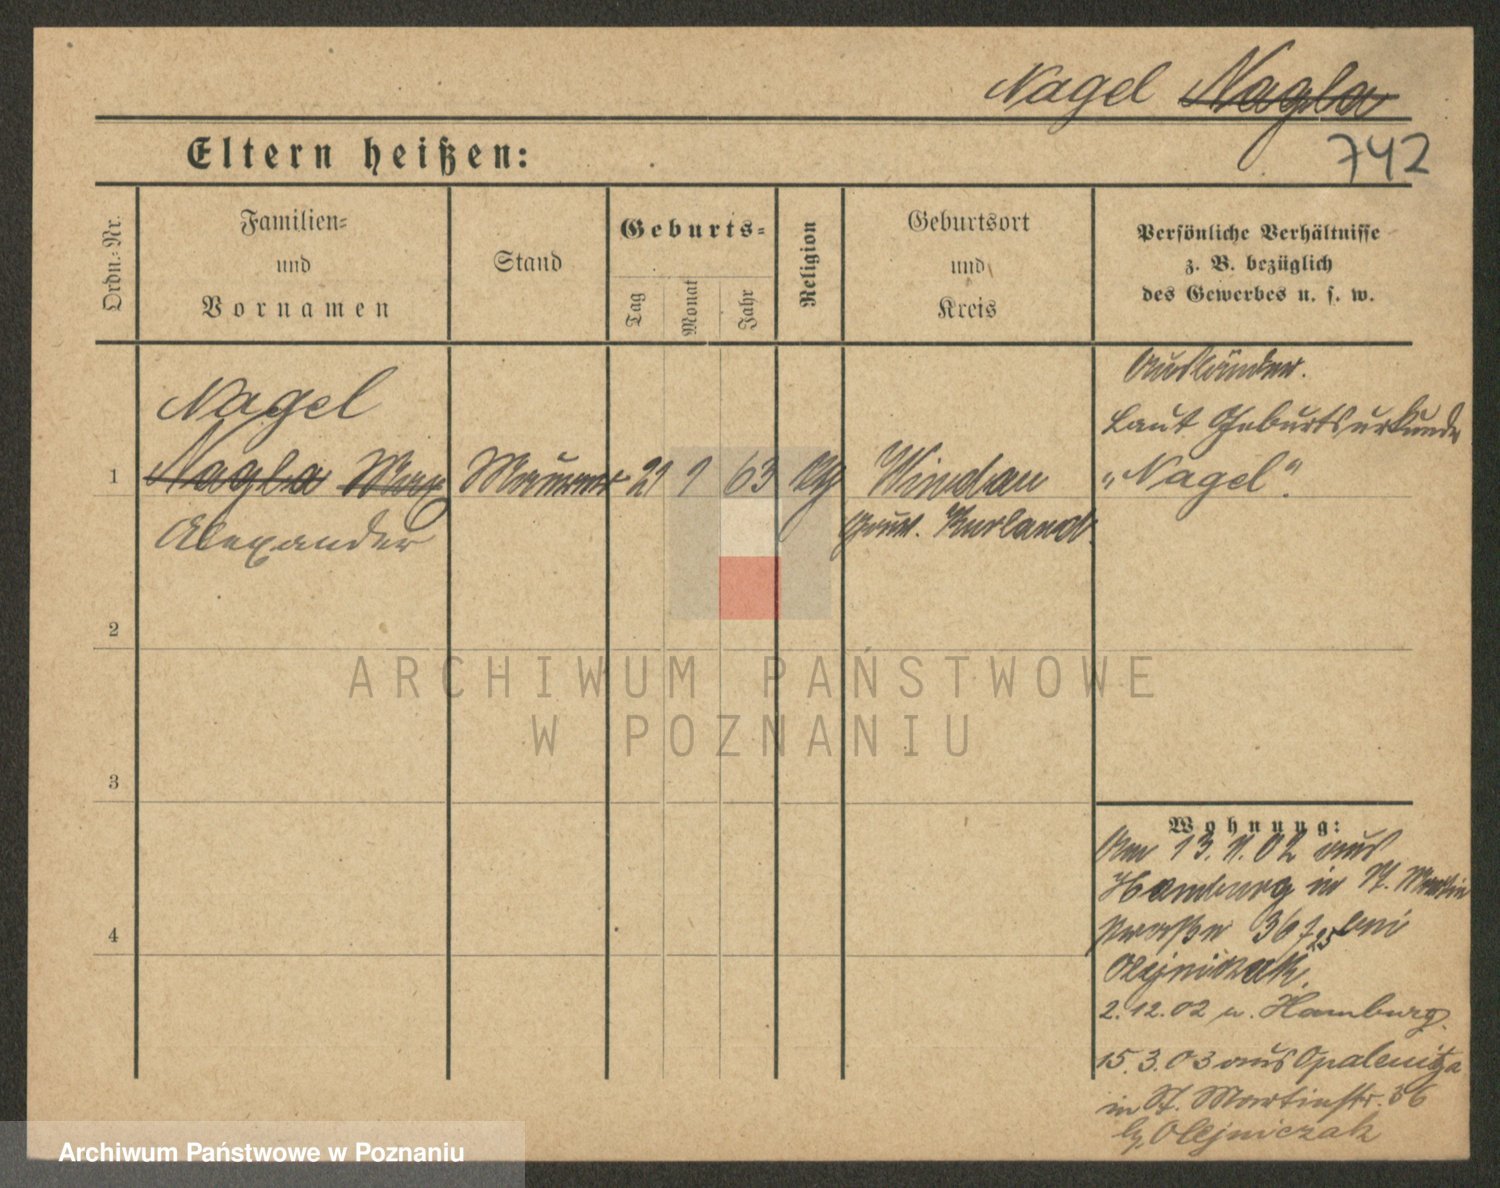 Nagel Nagla
742
Eltern heißen:
Ordn.-Nr.
Familien-
und
Vornamen
Stand
Geburts-
Tag
Monat
Jahr
Religion
Geburtsort
und
Kreis
Persönliche Verhältnisse
z. B. bezüglich
des Gewerbes u. s. w.
Ausländer.
Laut Geburtsurkunde
„Nagel“.
Nagel
1 Nagla Max Maurer 21 9 63 Windau
Gouv. Kurland.
Alexander
2
3
4
ARCHIWUM PAŃSTWOWE
W POZNANIU
Wohnung:
Am 13.11.02 aus
Hamburg in St. Martin
straße 36 bei
Olejniczak.
2.12.02 n. Hamburg.
15.3.03 aus Opalenitza
in St. Martinstr. 36
b. Olejniczak
Archiwum Państwowe w Poznaniu